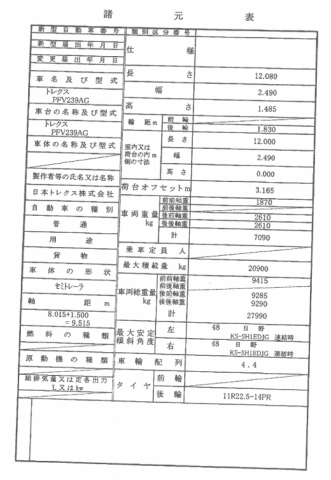 諸元表
新型自動車番号 類別区分番号
新型届出年月日 仕様
変更届出年月日
車名及び型式 長さ 12.080
トレクス PFV239AG 幅 2.490
車台の名称及び型式 高さ 1.485
トレクス PFV239AG 輪距m 前輪
後輪 1.830
車体の名称及び型式 室内又は荷台の内側の寸法 m 長さ 12.000
幅 2.490
製作者等の氏名又は名称 高さ 0.000
日本トレクス株式会社 荷台オフセットm 3.165
自動車の種別 車両重量kg 前前軸重 1870
前後軸重
普通 後前軸重 2610
後後軸重 2610
用途 計 7090
貨物 乗車定員 人
車体の形状 最大積載量 kg 20900
セミトレーラ 車両総重量kg 前前軸重 9415
前後軸重
軸距m 後前軸重 9285
後後軸重 9290
8.015+1.500 計 27990
=9.515
燃料の種類 最大安定傾斜角度 左 48 日野 KS-SH1EDJG 連結時
右 48 日野 KS-SH1EDJG 連結時
原動機の種類 車輪配列 4.4
総排気量又は定格出力 L又はkw タイヤ 前輪
後輪 11R22.5-14PR